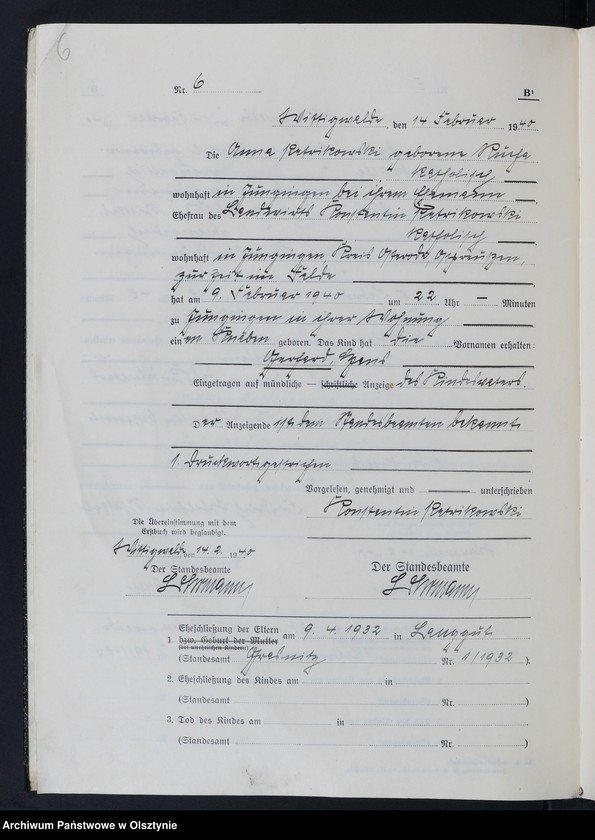 6
Nr. 6
B¹
Wittigwalde den 14 Februar 1940
Die Anna Petrikowski geborene
katholisch
wohnhaft in Jungingen bei ihrem Ehemann
Ehefrau des Landwirts Konstantin Petrikowski
katholisch
wohnhaft in Jungingen Kreis Osterode Ostpreußen,
zur Zeit im Felde
hat am 9. Februar 1940 um 22 Uhr — Minuten
zu Jungingen in ihrer Wohnung
einen Knaben geboren. Das Kind hat die Vornamen erhalten:
Gerhard, Hans
Eingetragen auf mündliche — schriftliche Anzeige des Kindesvaters.
Der Anzeigende ist dem Standesbeamten bekannt
1. Druckwort gestrichen
Vorgelesen, genehmigt und unterschrieben
Konstantin Petrikowski
Die Übereinstimmung mit dem
Erstbuch wird beglaubigt.
Wittigwalde den 14. 2. 1940
Der Standesbeamte
Der Standesbeamte
Eheschließung der Eltern
1. bzw. Geburt der Mutter am 9. 4. 1932 in Langgut
(bei unehelichen Kindern)
(Standesamt Gresnitz Nr. 1/1932 ).
2. Eheschließung des Kindes am in
(Standesamt Nr. )
3. Tod des Kindes am in
(Standesamt Nr. )
Archiwum Państwowe w Olsztynie